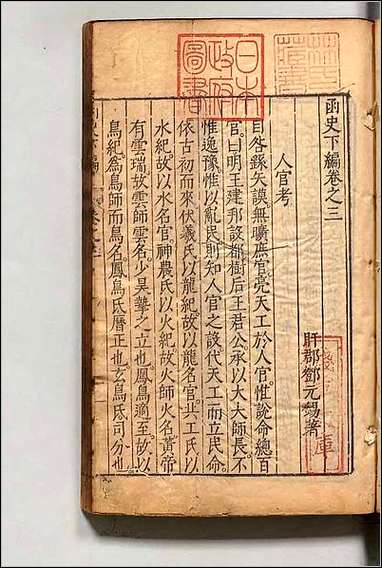 日本
政府
圖書
函史下編卷之三
盱郡鄧元錫著
人官考
自咎繇矢謨無曠庶官亮天工於人官惟說命總百
官曰明王建邦設都樹后王君公承以大夫師長不
惟逸豫惟以亂民則知人官之設代天工而立民命
依古初而來伏羲氏以龍紀故以龍名官共工氏以
水紀故以水名官神農氏以火紀故火師火名黃帝
有雲瑞故雲師雲名少昊摯之立也鳳鳥適至故以
鳥紀為鳥師而鳥名鳳鳥氏曆正也玄鳥氏司分也